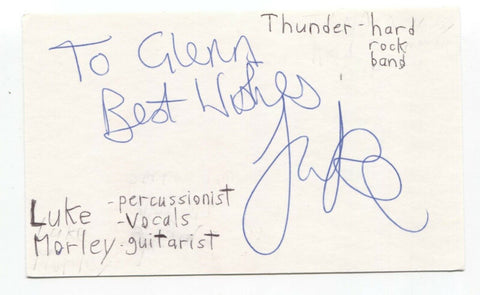 Thunder - hard
rock
band
To Glenn
Best Wishes
Luke
Luke - percussionist
- Vocals
Morley - guitarist